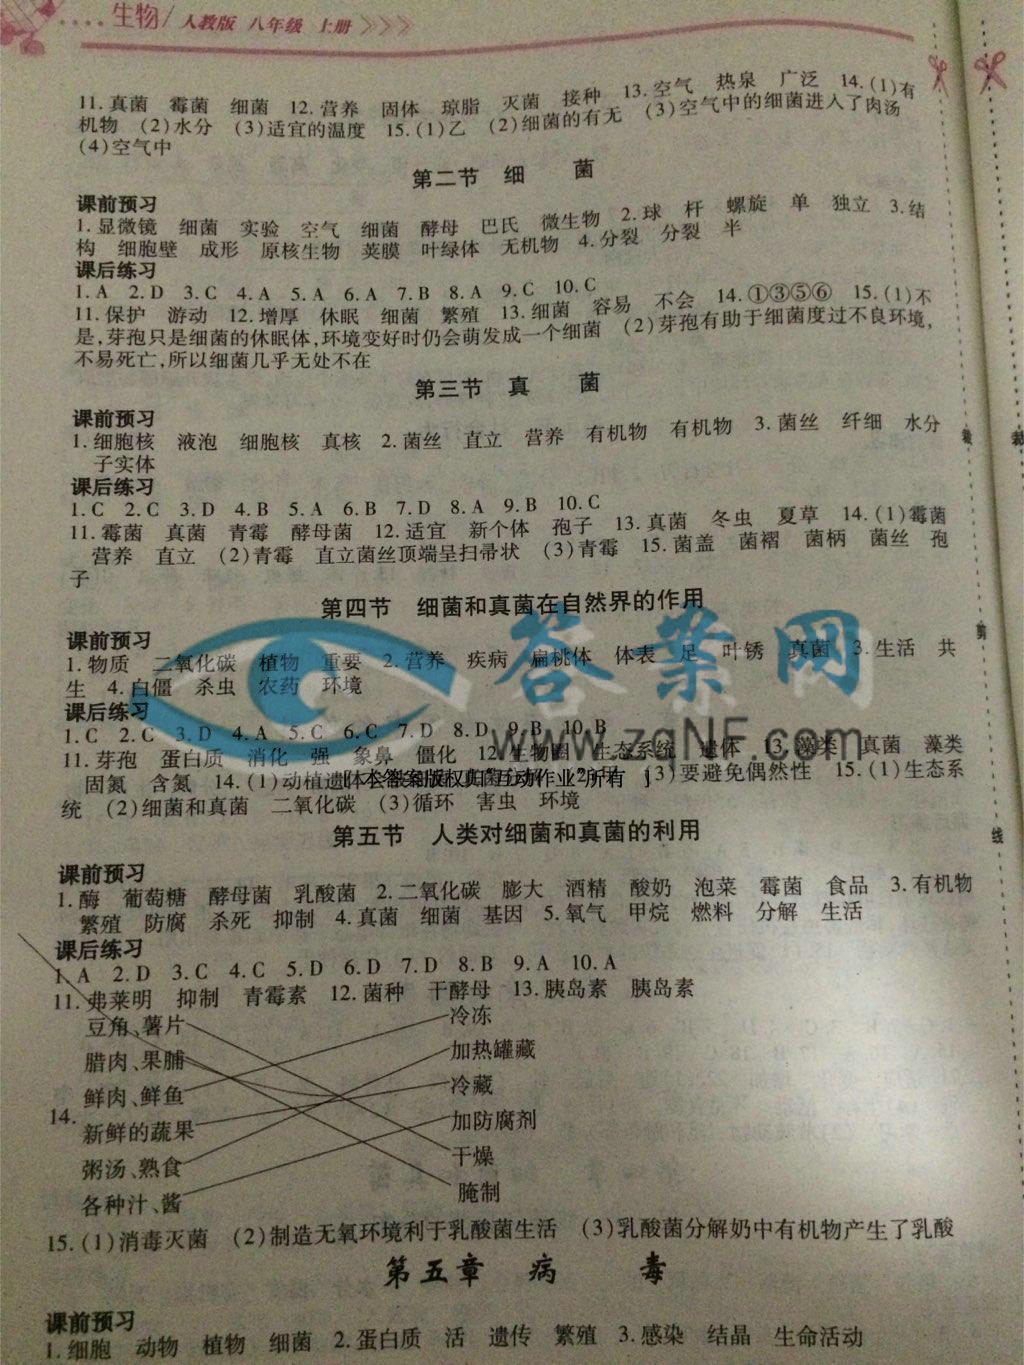 生物/人教版 八年级 上册
11.真菌 霉菌 细菌 12.营养 固体 琼脂 灭菌 接种 13.空气 热泉 广泛 14.(1)有
机物 (2)水分 (3)适宜的温度 15.(1)乙 (2)细菌的有无 (3)空气中的细菌进入了肉汤
(4)空气中
第二节 细 菌
课前预习
1.显微镜 细菌 实验 空气 细菌 酵母 巴氏 微生物 2.球 杆 螺旋 单 独立 3.结
构 细胞壁 成形 原核生物 荚膜 叶绿体 无机物 4.分裂 分裂 半
课后练习
1.A 2.D 3.C 4.A 5.A 6.A 7.B 8.A 9.C 10.C
11.保护 游动 12.增厚 休眠 细菌 繁殖 13.细菌 容易 不会 14.①③⑤⑥ 15.(1)不
是,芽孢只是细菌的休眠体,环境变好时仍会萌发成一个细菌 (2)芽孢有助于细菌度过不良环境,
不易死亡,所以细菌几乎无处不在
第三节 真 菌
课前预习
1.细胞核 液泡 细胞核 真核 2.菌丝 直立 营养 有机物 有机物 3.菌丝 纤细 水分
子实体
课后练习
1.C 2.C 3.D 4.B 5.A 6.B 7.D 8.A 9.B 10.C
11.霉菌 真菌 青霉 酵母菌 12.适宜 新个体 孢子 13.真菌 冬虫 夏草 14.(1)霉菌
营养 直立 (2)青霉 直立菌丝顶端呈扫帚状 (3)青霉 15.菌盖 菌褶 菌柄 菌丝 孢
子
第四节 细菌和真菌在自然界的作用
课前预习
1.物质 二氧化碳 植物 重要 2.营养 疾病 扁桃体 体表 足 叶锈 真菌 3.生活 共
生 4.白僵 杀虫 农药 环境
答案网
www.zqNF.com
课后练习
1.C 2.C 3.D 4.A 5.C 6.C 7.D 8.D 9.B 10.B
11.芽孢 蛋白质 消化 强 象鼻 僵化 12.生物圈 生态系统 遗体 13.藻类 真菌 藻类
固氮 含氮 14.(1)动植遗体 (3)要避免偶然性 15.(1)生态系
统 (2)细菌和真菌 二氧化碳 (3)循环 害虫 环境
第五节 人类对细菌和真菌的利用
课前预习
1.酶 葡萄糖 酵母菌 乳酸菌 2.二氧化碳 膨大 酒精 酸奶 泡菜 霉菌 食品 3.有机物
繁殖 防腐 杀死 抑制 4.真菌 细菌 基因 5.氧气 甲烷 燃料 分解 生活
课后练习
1.A 2.D 3.C 4.C 5.D 6.D 7.D 8.B 9.A 10.A
11.弗莱明 抑制 青霉素 12.菌种 干酵母 13.胰岛素 胰岛素
14.
豆角、薯片 冷冻
腊肉、果脯 加热罐藏
鲜肉、鲜鱼 冷藏
新鲜的蔬果 加防腐剂
粥汤、熟食 干燥
各种汁、酱 腌制
15.(1)消毒灭菌 (2)制造无氧环境利于乳酸菌生活 (3)乳酸菌分解奶中有机物产生了乳酸
第五章 病 毒
课前预习
1.细胞 动物 植物 细菌 2.蛋白质 活 遗传 繁殖 3.感染 结晶 生命活动
剪
线